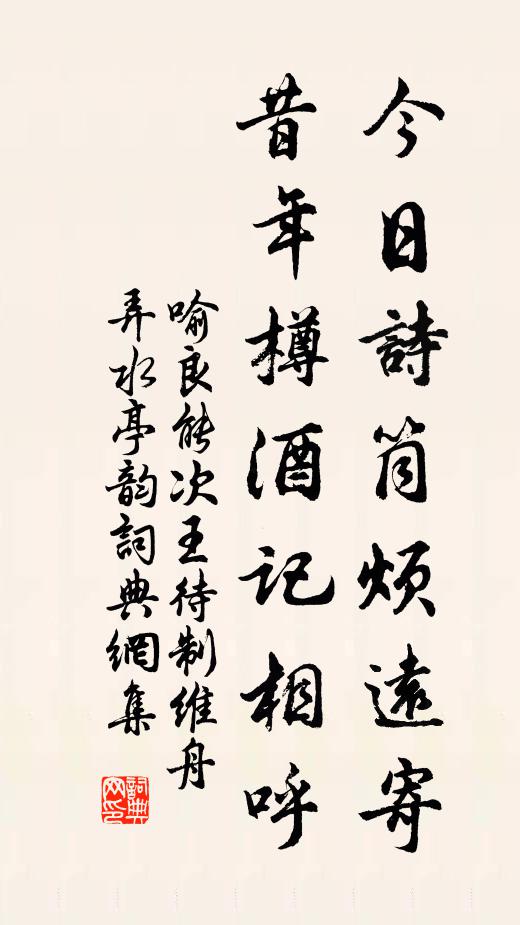 今日詩筒煩遠寄
昔年樽酒記相呼
喻良能次王待制維舟
弄水亭韵詞典網集
詞典
网印